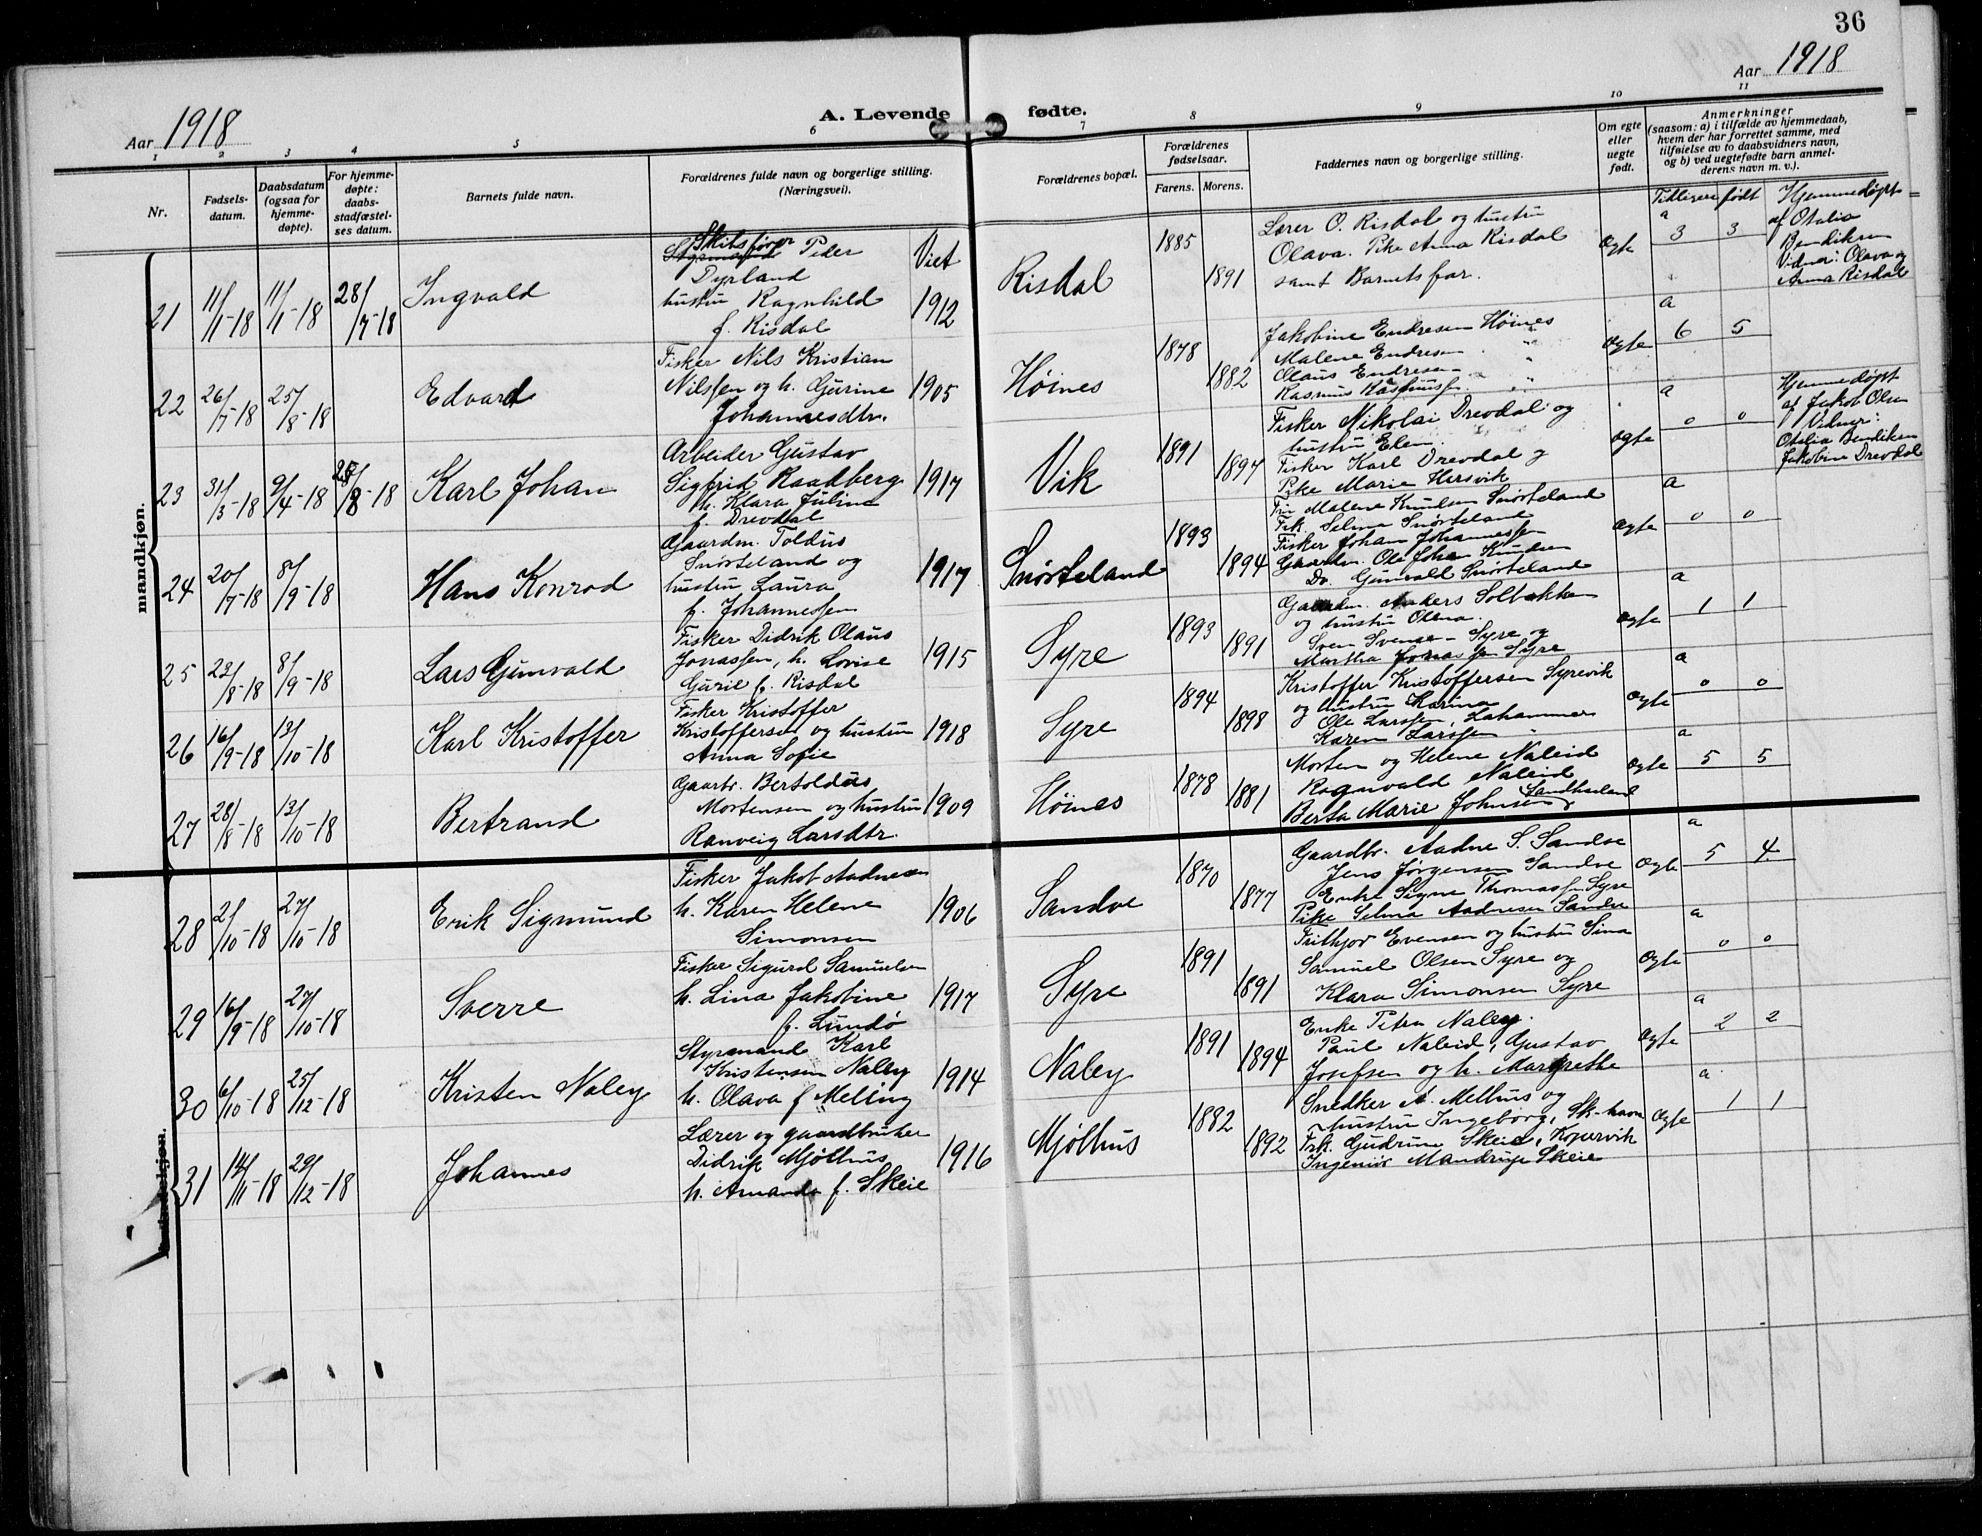 36
Aar 1918
A. Levende fødte.
Aar 1918
1 2 3 4 5 6 7 8 9 10 11
Nr.
Fødsels-
datum.
Daabsdatum
(ogsaa for
hjemme-
døpte).
For hjemme-
døpte:
daabs-
stadfæstel-
ses datum.
Barnets fulde navn.
Forældrenes fulde navn og borgerlige stilling.
(Næringsvei).
Forældrenes bopæl.
Forældrenes
fødselsaar.
Farens. Morens.
Faddernes navn og borgerlige stilling.
Om egte
eller
uegte
født.
Anmerkninger
(saasom: a) i tilfælde av hjemmedaab,
hvem der har forrettet samme, med
tilføielse av to daabsvidners navn,
og b) ved uegtefødte barn anmel-
derens navn m. v.).
mandkjøn.
Tidligere født
21 11/1-18 11/1-18 28/7-18 Ingvald
Skibsfører Peder
Dyrland
hustru Ragnhild
f. Risdal
Viet
1912
Risdal 1885 1891
Lærer O. Risdal og hustru
Olava. Pike Anna Risdal
samt Barnets far.
Ægte
a
3 3
Hjemmedøpt
af Otalia
Bendiksen
Vidner: Olava og
Anna Risdal
22 26/7-18 25/8-18 Edvard
Fisker Nils Kristian
Nilssen og h. Gurine
Johannesdtr.
1905
Høines 1878 1882
Jakobine Endresen Høines
Malene Endresen "
Olaus Endresen "
Rasmus Rasmussen "
Ægte
a
6 5
23 31/3-18 9/4-18 25/8-18 Karl Johan
Arbeider Gustav
Sigfrid Raadberg
h. Klara Juline
f. Drevdal
1917
Vik 1891 1894
Fisker Nikolai Drevdal og
hustru Elen.
Fisker Karl Drevdal og
Pike Marie Hersvik
Ægte
a
0 0
Hjemmedøpt
af Jakob Olsen
Vidner:
Otalia Bendiksen
Jakobine Drevdal
24 20/7-18 8/9-18 Hans Konrad
Gaardm. Toldus
Snørteland og
hustru Laura
f. Johannessen
1917
Snørteland 1893 1894
Fru Malene Knudsen Snørteland
Frk. Selma Snørteland
Fisker Johan Johannessen
Gaardm. Ole Johan Knudsen
Do. Gunvald Snørteland
Ægte
a
0 0
25 23/8-18 8/9-18 Lars Gunvald
Fisker Didrik Olaus
Jonassen, h. Lovise
Gurie f. Risdal
1915
Syre 1893 1891
Gaardm. Anders Solbakken
og hustru Olena.
Sven Svensen Syre og
Martha Jonassen Syre
Ægte
a
1 1
26 16/9-18 13/10-18 Karl Kristoffer
Fisker Kristoffer
Kristoffersen og hustru
Anna Sofie
1918
Syre 1894 1898
Kristoffer Kristoffersen Syrevik
og hustru Karina
Ole Larssen, Lahammer
Karen Larssen "
Ægte
a
0 0
27 28/8-18 13/10-18 Bertrand
Gaarbr. Bertoldus
Mortensen og hustru
Ranveig Larsdtr.
1909
Høines 1878 1881
Morten og Helene Naleid
Ragnvald Naleid
Berta Marie Johnsen,
Ægte
a
5 5
28 2/10-18 27/10-18 Erik Sigmund
Fisker Jakob Aadnesen
h. Karen Helene
Simonsen
1906
Sandve 1870 1877
Gaardbr. Aadne S. Sandve
Jens Jørgensen Sandve
Enke Signe Thomassen Syre
Pike Selma Aadnesen Sandve
Ægte
a
5 4
29 16/9-18 27/10-18 Sverre
Fisker Sigurd Samuelsen
h. Lina Jakobine
f. Lundø
1917
Syre 1891 1891
Frithjov Evensen og hustru Sina
Samuel Olsen Syre og
Klara Simonsen Syre
Ægte
a
0 0
30 6/10-18 25/12-18 Kristen Naley
Styrmand Karl
Kristensen Naley
h. Olava f Meling
1914
Naley 1891 1894
Enke Petra Naley.
Paul Naleid, Gustav
Josefsen og h. Margrethe
Ægte
a
2 2
31 14/11-18 29/12-18 Johannes
Lærer og gaardbruker
Didrik Mjølhus
h. Amanda f. Skeie
1916
Mjølhus 1882 1892
Snedker A. Melhus og
hustru Ingeborg, Sk-havn
Frk. Gudrun Skeie, Kopervik
Ingeniør Mandrup Skeie
Ægte
a
1 1